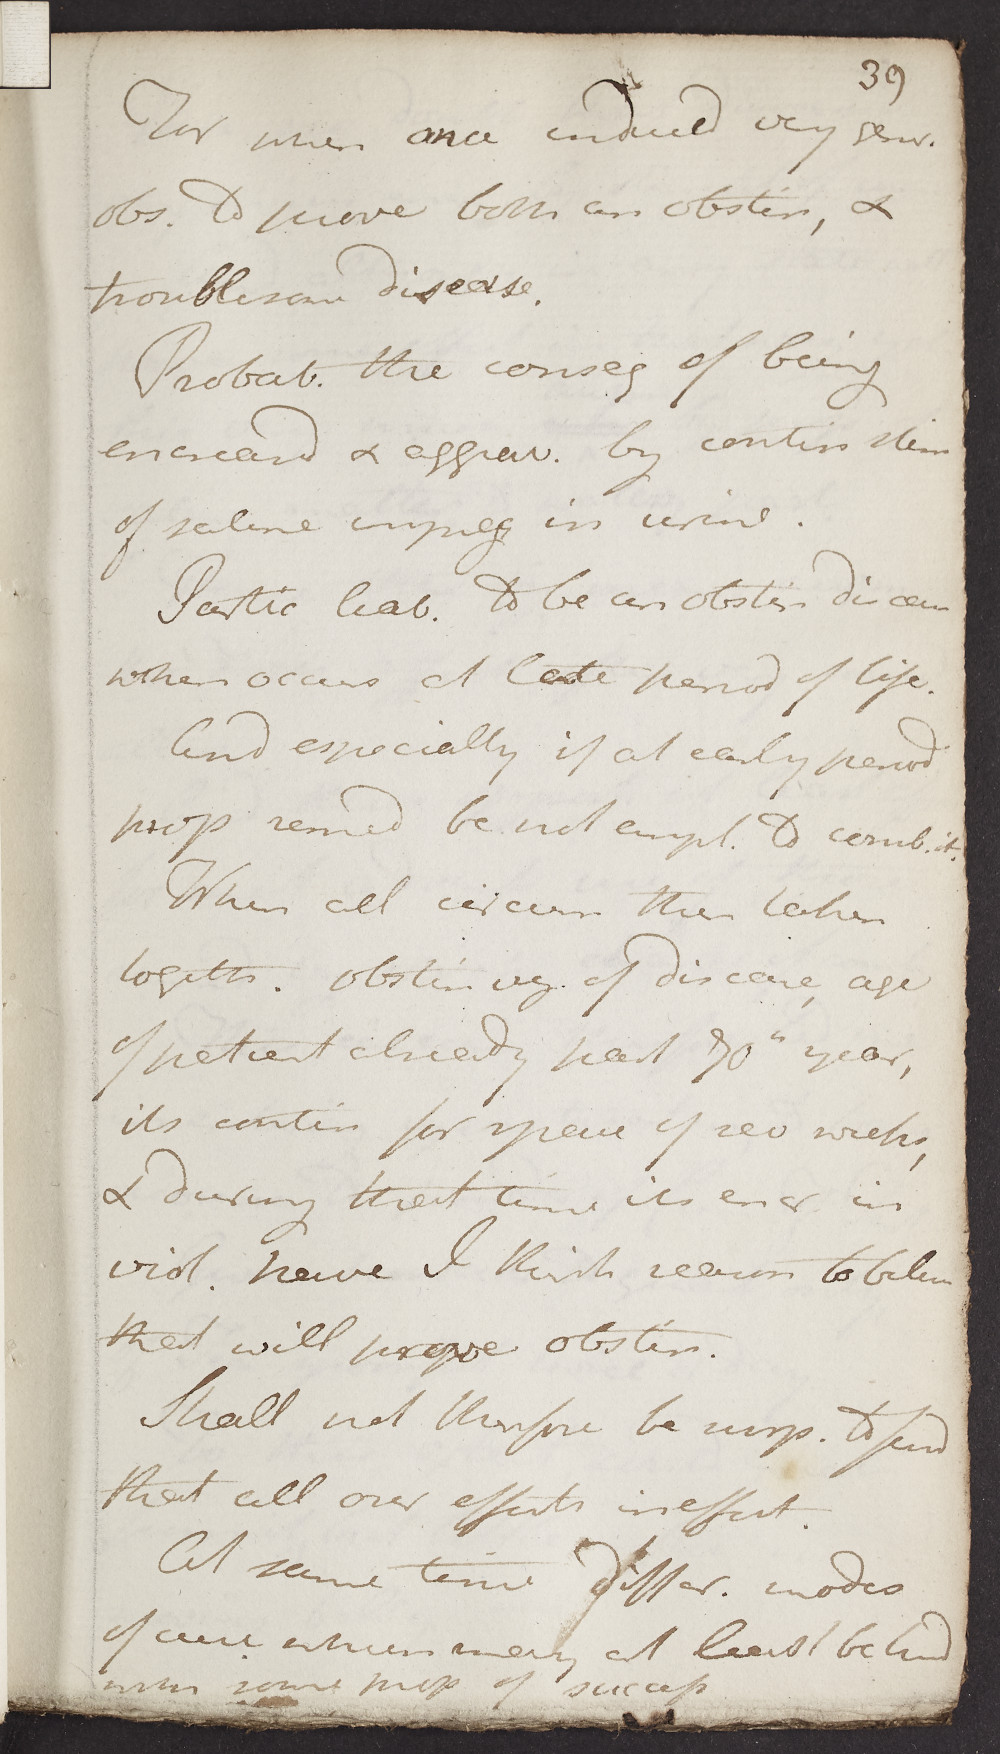 39
For when once induced very gener.
obs. to prove both an obstin, &
troublesome disease.
Probab. the conseq of being
encreasd & aggrav. by contin stim
of saline impreg in urine.
Partic liab. to be an obstin disease
when occurs at late period of life.
And especially if at early period
prop remed be not empl. to comb. it.
When all circum then taken
togeth. obstin of disease, age
of patient already past 70th year,
its contin for space of sev weeks,
& during that time its encr in
viol. have I think reason to believ
that will prove obstin.
Shall not therefore be surp. to find
that all our efforts ineffect.
At same time differ. modes
of cure which may at least be tried
with some prosp of success